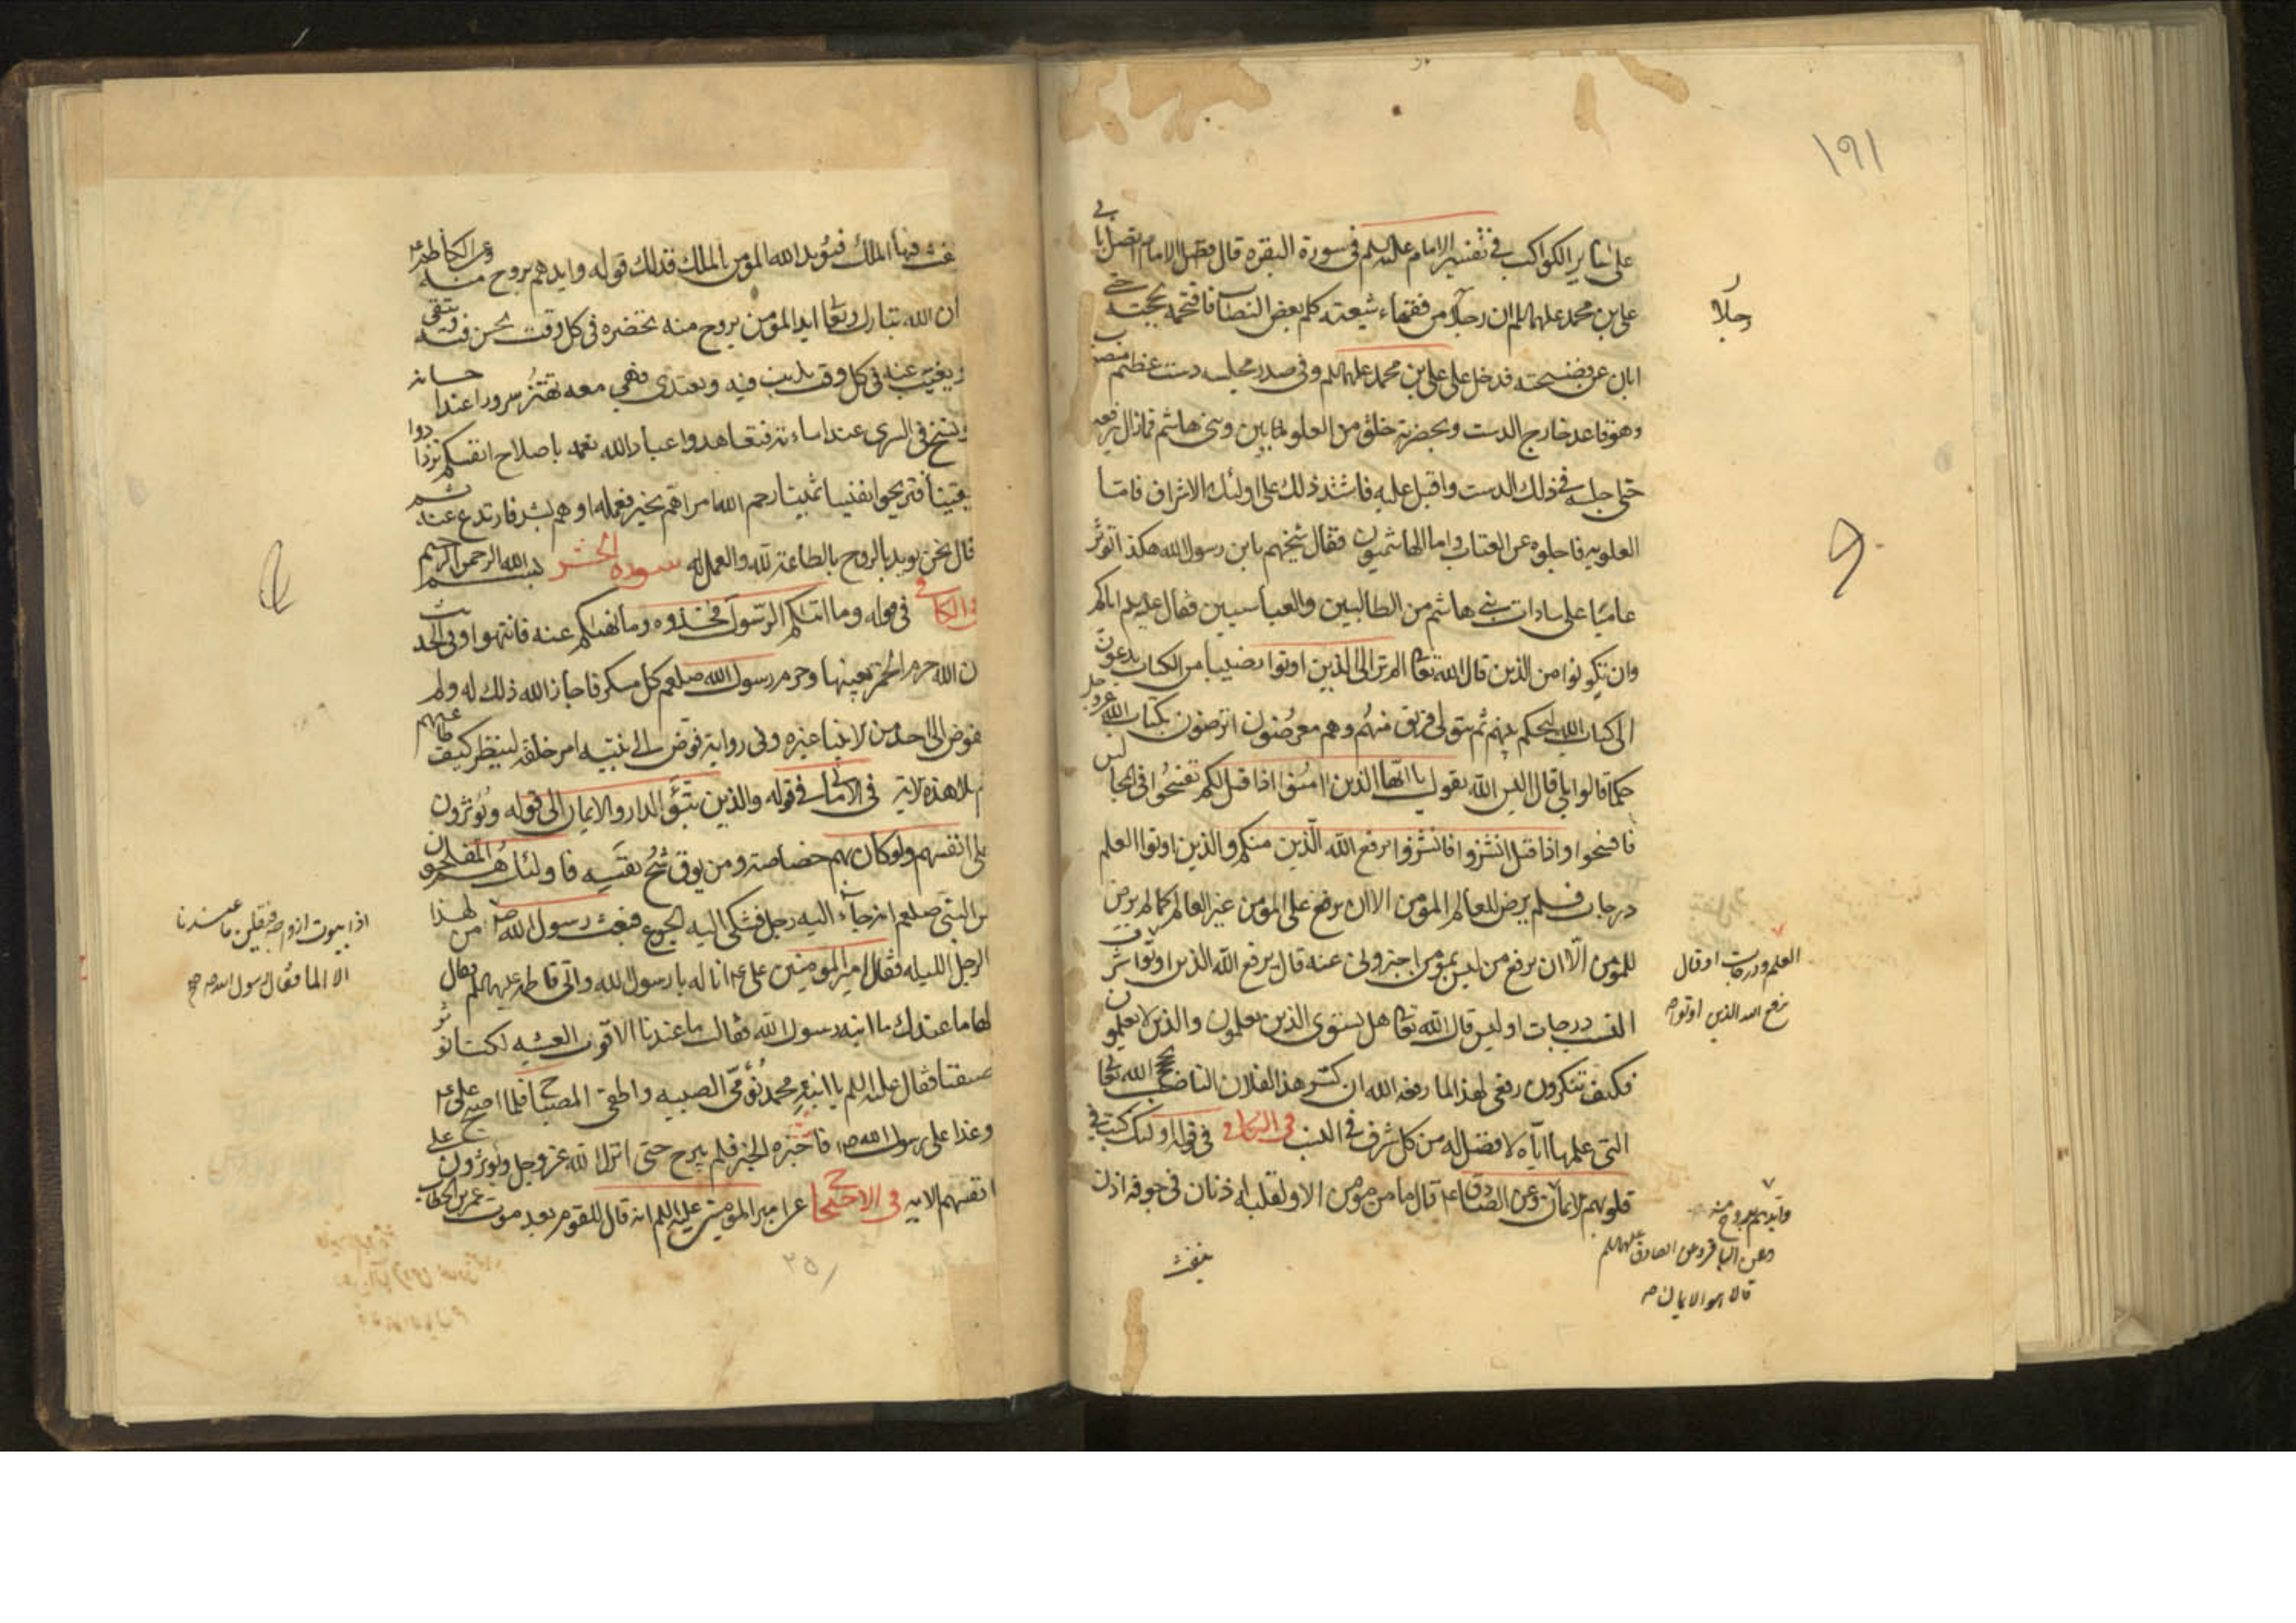 ١٩١
على سائر الكواكب في تفسير الامام عليه السلم في سورة البقره قال فضل الامام اتصل بابي
على بن محمد عليهما السلم ان رجلا من فقهاء شيعته كلم بعض النصاب فافحمه بحجته حتى
ابان عن فضيحته فدخل على على بن محمد عليهما السلم وفى صدر مجلسه دست عظيم منصوب
وهو قاعد خارج الدست وبحضرته خلق من العلويين وبنى هاشم فمازال يرفعه
حتى اجلسه في ذلك الدست واقبل عليه فاشتد ذلك على اولئك الاشراف فاما
العلويه فاجلوه عن العتاب واما الهاشميون فقال شيخهم يا بن رسول الله هكذا تؤثر
عاميا على سادات بنى هاشم من الطالبيين والعباسيين فقال عليه السلم اياكم
وان تكونوا من الذين قال الله تعالى الم تر الى الذين اوتوا نصيبا من الكتاب يدعون
الى كتاب الله ليحكم بينهم ثم يتولى فريق منهم وهم معرضون اترضون بكتاب الله عزوجل
حكما قالوا بلى قال اليس الله يقول يا ايها الذين امنوا اذا قيل لكم تفسحوا فى المجالس
فافسحوا واذا قيل انشزوا فانشزوا يرفع الله الذين منكم والذين اوتوا العلم
درجات فلم يرض للعالم المؤمن الا ان يرفع على المؤمن غير العالم كما لم يرض
للمؤمن الا ان يرفع من ليس بمؤمن اخبرونى عنه قال يرفع الله الذين اوتوا شرف
النسب درجات اوليس قال الله تعالى هل يستوى الذين يعلمون والذين لا يعلمون
فكيف تنكرون رفعى لهذا لما رفعه الله ان كسر هذا الفلان الناصب بحجج الله تعالى
التى علمها اياه لافضل له من كل شرف في النسب فى الكافى فى قوله اولئك كتب في
قلوبهم الايمان وعن الصادق ع قال ما من مؤمن الا ولقلبه اذنان فى جوفه اذن
ينفث
رجلا
العلم درجات او قال
يرفع الله الذين اوتوا
وايدهم بروح منه
وعن الباقر وعن الصادق عليهما السلم
قالا هو الايمان
ينفث فيها الملك فيؤيد الله المؤمن بالملك فذلك قوله وايدهم بروح منه وعن الكاظم ع
ان الله تبارك وتعالى ايد المؤمن بروح منه تحضره فى كل وقت يحسن فيه ويتقى
ويغيب عنه فى كل وقت يذنب فيه ويعتدى فهى معه تهتز سرورا عند احسانه
وتسيخ فى الثرى عند اساءته فتعاهدوا عباد الله نعمه باصلاح انفسكم تزدادوا
يقينا وتربحوا نفيسا ثمينا رحم الله امرا هم بخير فعمله او هم بشر فارتدع عنه ثم
قال نحن نؤيد بالروح بالطاعة لله والعمل له سورة الحشر بسم الله الرحمن الرحيم
فى الكافى فى قوله وما اتيكم الرسول فخذوه وما نهيكم عنه فانتهوا وفى الحديث
ان الله حرم الخمر بعينها وحرم رسول الله صلعم كل مسكر فاجاز الله ذلك له ولم
يفوض الى احد من الانبياء غيره وفى رواية فوض الى نبيه امر خلقه لينظر كيف طاعتهم
ثم تلا هذه الاية فى الامالى فى قوله والذين تبوؤ الدار والايمان الى قوله ويؤثرون
على انفسهم ولو كان بهم خصاصة ومن يوق شح نفسه فاولئك هم المفلحون
عن النبى صلعم انه جاء اليه رجل فشكى اليه الجوع فبعث رسول الله ص من لهذا
الرجل الليله فقال امير المومنين على ع انا له يا رسول الله واتى فاطمه عليها السلم فقال
لها ما عندك يا ابنه رسول الله فقالت ما عندنا الا قوت العشيه لكنا نؤثر
ضيفنا فقال عليه السلم يا ابنة محمد نومى الصبيه واطفى المصباح فلما اصبح على ع
وغدا على رسول الله ص فاخبره الخبر فلم يبرح حتى انزل الله عز وجل ويؤثرون على
انفسهم الايه فى الاحتجاج عن امير المؤمنين عليه السلم انه قال للقوم بعد موت عمر بن الخطاب
الى بيوت ازواجه فقلن ما عندنا
الا الما فقال رسول الله ص صح
٢٥